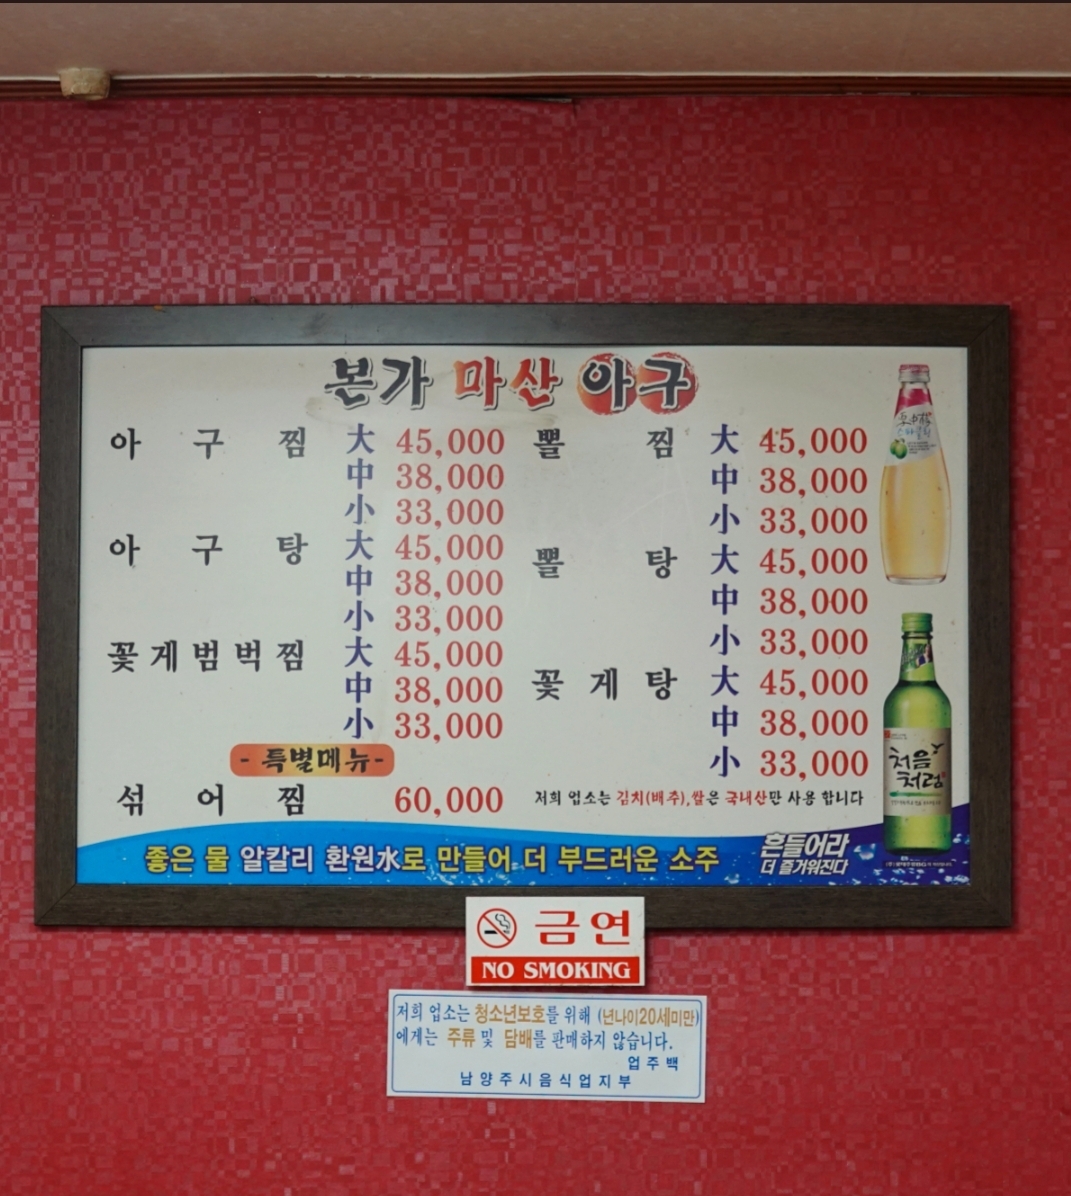 본가 마산 아구
아구찜 大 45,000
中 38,000
小 33,000
아구탕 大 45,000
中 38,000
小 33,000
꽃게범벅찜 大 45,000
中 38,000
小 33,000
- 특별메뉴 -
섞어찜 60,000
뽈찜 大 45,000
中 38,000
小 33,000
뽈탕 大 45,000
中 38,000
小 33,000
꽃게탕 大 45,000
中 38,000
小 33,000
저희 업소는 김치(배추),쌀은 국내산만 사용 합니다
처음
처럼
좋은 물 알칼리 환원水로 만들어 더 부드러운 소주
흔들어라
더 즐거워진다
금연
NO SMOKING
저희 업소는 청소년보호를 위해 (년나이20세미만)
에게는 주류 및 담배를 판매하지 않습니다.
업주백
남양주시음식업지부